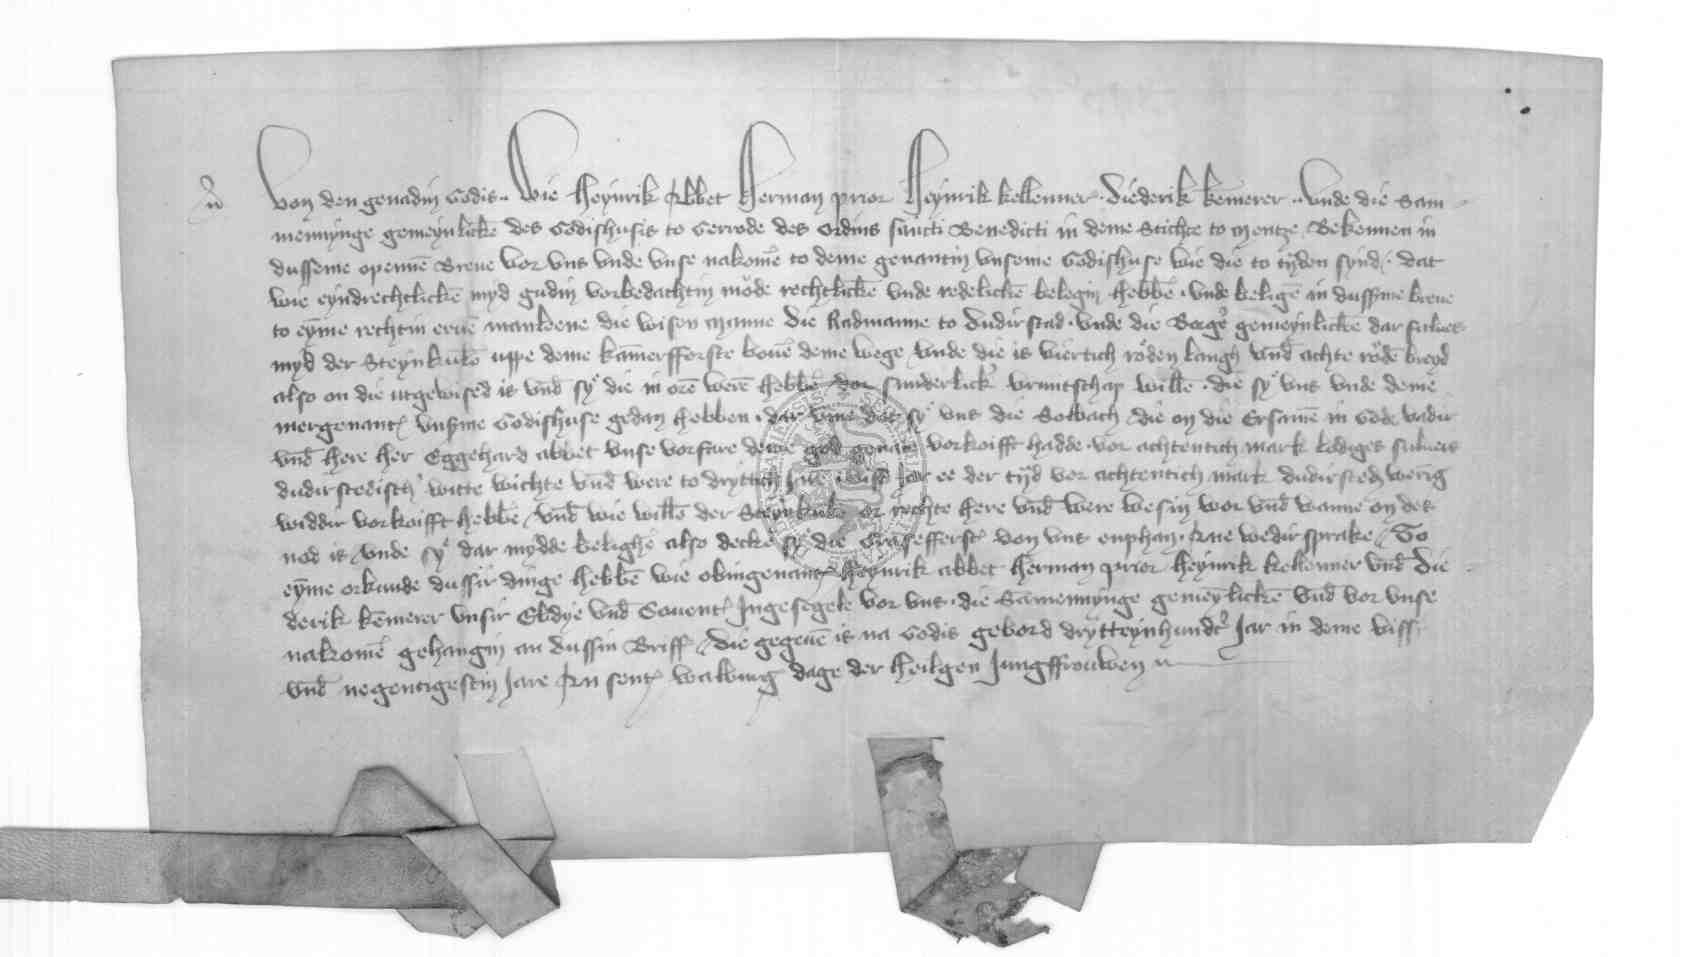 Von den genadin Godis. Wie Heynrik Abbet Herman prior Heynrik kellenner. Diederik kemerer. Unde die Sam-
mennynge gemeynlickē des Godishusis to Gerrode des ordins sancti Benedicti in deme Stichte to Mentze. Bekennen in
dusseme opennē Breue vor vns vnde vnse nakomē to deme genantin vnseme Godishuse wie die to tyden synd. dat
wie eyndrechtlickē myd gudin vorbedachtin mode rechtlickē vnde redelickē belegin hebbē. vnde beligē in dussme breue
to eyme rechtin eruē manlene die wisen manne die Radmanne to Dudirstad. vnde die Borgē gemeynlickē dar sulues
myd der Steynkulē uppe deme kamerfforste bouē deme wege vnde die is viertich roden langh vnd achte rodē breyd
also on die utgewised is vnd sy die in orē werē hebbē dor sunderlick vruntschap willē. die sy vns vnde deme
mergenant vnsme Godishuse gedan hebben. dar vme dat sy vns die Solbach die on die Ersamē in Gode vadir
vnd here her Eggehard abbet vnse vorfare deme god genade vorkoifft hadde. vor achtentich mark lodiges siluers
dudirstedisch witte wichte vnd were to dryttich Jare wist jar ee der tyd vor achtentich mark dudirsted werig
widdir vorkoifft hebbē vnd wie willē der Steynkulē or rechte here vnd were wesin wor vnd wanne on des
nod is vnde sy dar mydde belighē also decke sy die Grasefferst von vns enphan. Ane wedirsprake. To
eyme orkunde dussir dinge hebbē wie obingenant Heynrik abbet Herman prior Heynrik kellenner vnd Die-
derik kemerer vnsir Ebdye vnd Couent Ingesegele vor vns. die Samennynge gemeylickē vnd vor vnse
nakomē gehangin an dussin Briff. die gegeuē is na Godis gebord drytteynhundt Jar in deme viff
vnd negentigestin Jare An sent walburg dage der heilgen Jungffrouwen